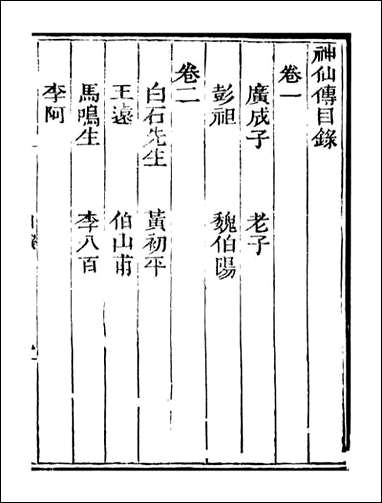 神仙傳目錄
卷一
廣成子　老子
彭祖　魏伯陽
卷二
白石先生　黃初平
王遠　伯山甫
馬鳴生　李八百
李阿